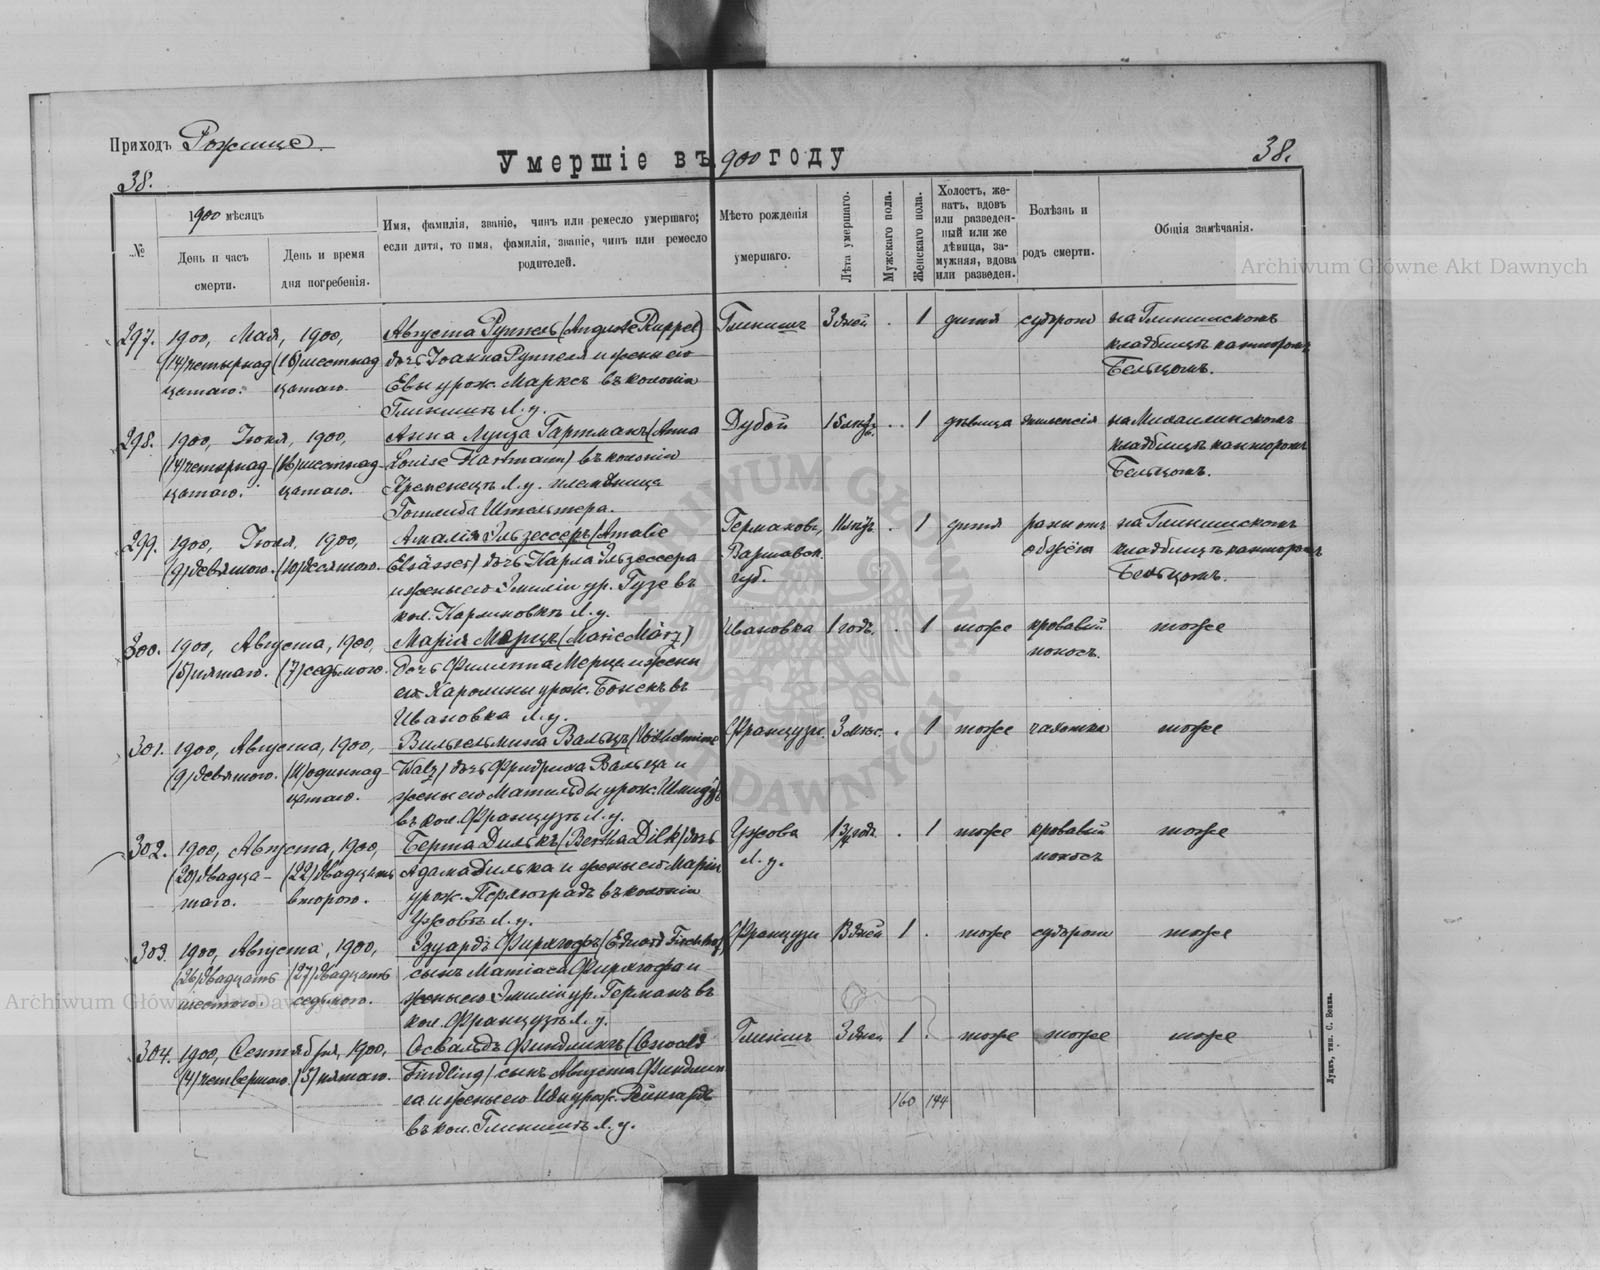 Приходъ Рожище.
Умершіе въ 1900 году
38.
38.
№
1900 мѣсяцъ
День и часъ смерти.
День и время дня погребенія.
Имя, фамилія, званіе, чинъ или ремесло умершаго;
если дитя, то имя, фамилія, званіе, чинъ или ремесло
родителей.
Мѣсто рожденія
умершаго.
Лѣта умершаго.
Мужскаго пола.
Женскаго пола.
Холостъ, же-
натъ, вдовъ
или разведен-
ный или же
дѣвица, за-
мужняя, вдова
или разведен.
Болѣзнь и
родъ смерти.
Общія замѣчанія.
297. 1900, Мая, 1900, Августа Руппель (Auguste Ruppel) Глинищ 3 дней . 1 дитя судороги на Глинищскомъ
(14) четырнад (16) шестнад дочь Іоанна Руппеля и жены его кладбищѣ канторомъ
цатаго. цатаго. Евы урож. Марксъ въ колоніи Бельцомъ.
Глинищъ Л. у.
298. 1900, Іюня, 1900, Анна Луиза Гартманъ (Anna Дубой 15 лѣтъ . 1 дѣвица эпилепсія на Михаилинскомъ
(14) четырнад (16) шестнад- Louise Hartmann) въ колоніи кладбищѣ канторомъ
цатаго. цатаго. Кременецъ Л. у. племянница Бельцомъ.
Готлиба Штельтера.
299. 1900, Іюня, 1900, Амалія Эльзессеръ (Amalie 11 лѣтъ . 1 дитя раны отъ на Глинищскомъ
(9) девятого. (10) десятого. Elsässer) дочь Карла Эльзессера Варшавск. обжёга кладбищѣ канторомъ
и жены его Эмиліи ур. Гузе въ губ. Бельцомъ.
кол. Карлиновкѣ Л. у.
300. 1900, Августа, 1900, Марія Мерцъ (Marie März) Ивановка 1 годъ. . 1 тоже кровавый тоже
(5) пятаго. (7) седьмого. дочь Филиппа Мерца и жены поносъ.
его Каролины урож. Бонскъ въ
Ивановка Л. у.
301. 1900, Августа, 1900, Вильгельмина Вальцъ (Wilhelmine Французы. 3 мѣс. . 1 тоже чахотка тоже
(9) девятого. (11) одиннад- Walz) дочь Фридриха Вальца и
цатаго. жены его Матильды урож. Шмидтъ
въ кол. Французъ Л. у.
302. 1900, Августа, 1900, Берта Дилькъ (Bertha Dilk) дочь Ужова 1 3/4 годъ . 1 тоже кровавый тоже
(20) двадца- (22) двадцать Адама Дилька и жены его Маріи Л. у. поносъ
таго. второго. урож. въ колоніи
Ужовъ Л. у.
303. 1900, Августа, 1900, Эдуардъ (Eduard Французы 13 дней 1 . тоже судороги тоже
(26) двадцать (27) двадцать сынъ Матіаса и
шестого. седьмого. жены его Эмиліи ур. Германъ въ
кол. Французъ Л. у.
304. 1900, Сентября, 1900, Освальдъ Финдлингъ (Oswald Глинищ 3 дней 1 . тоже тоже тоже
(4) четвертаго. (5) пятаго. Findling) сынъ Августа Финдлин
га и жены его Иды урож. Рейнгардъ
въ кол. Глинищъ Л. у.
160 144
Луцкъ, тип. С. Бонка.
Archiwum Główne Akt Dawnych
Archiwum Główne Akt Dawnych
ARCHIWUM GŁÓWNE AKT DAWNYCH